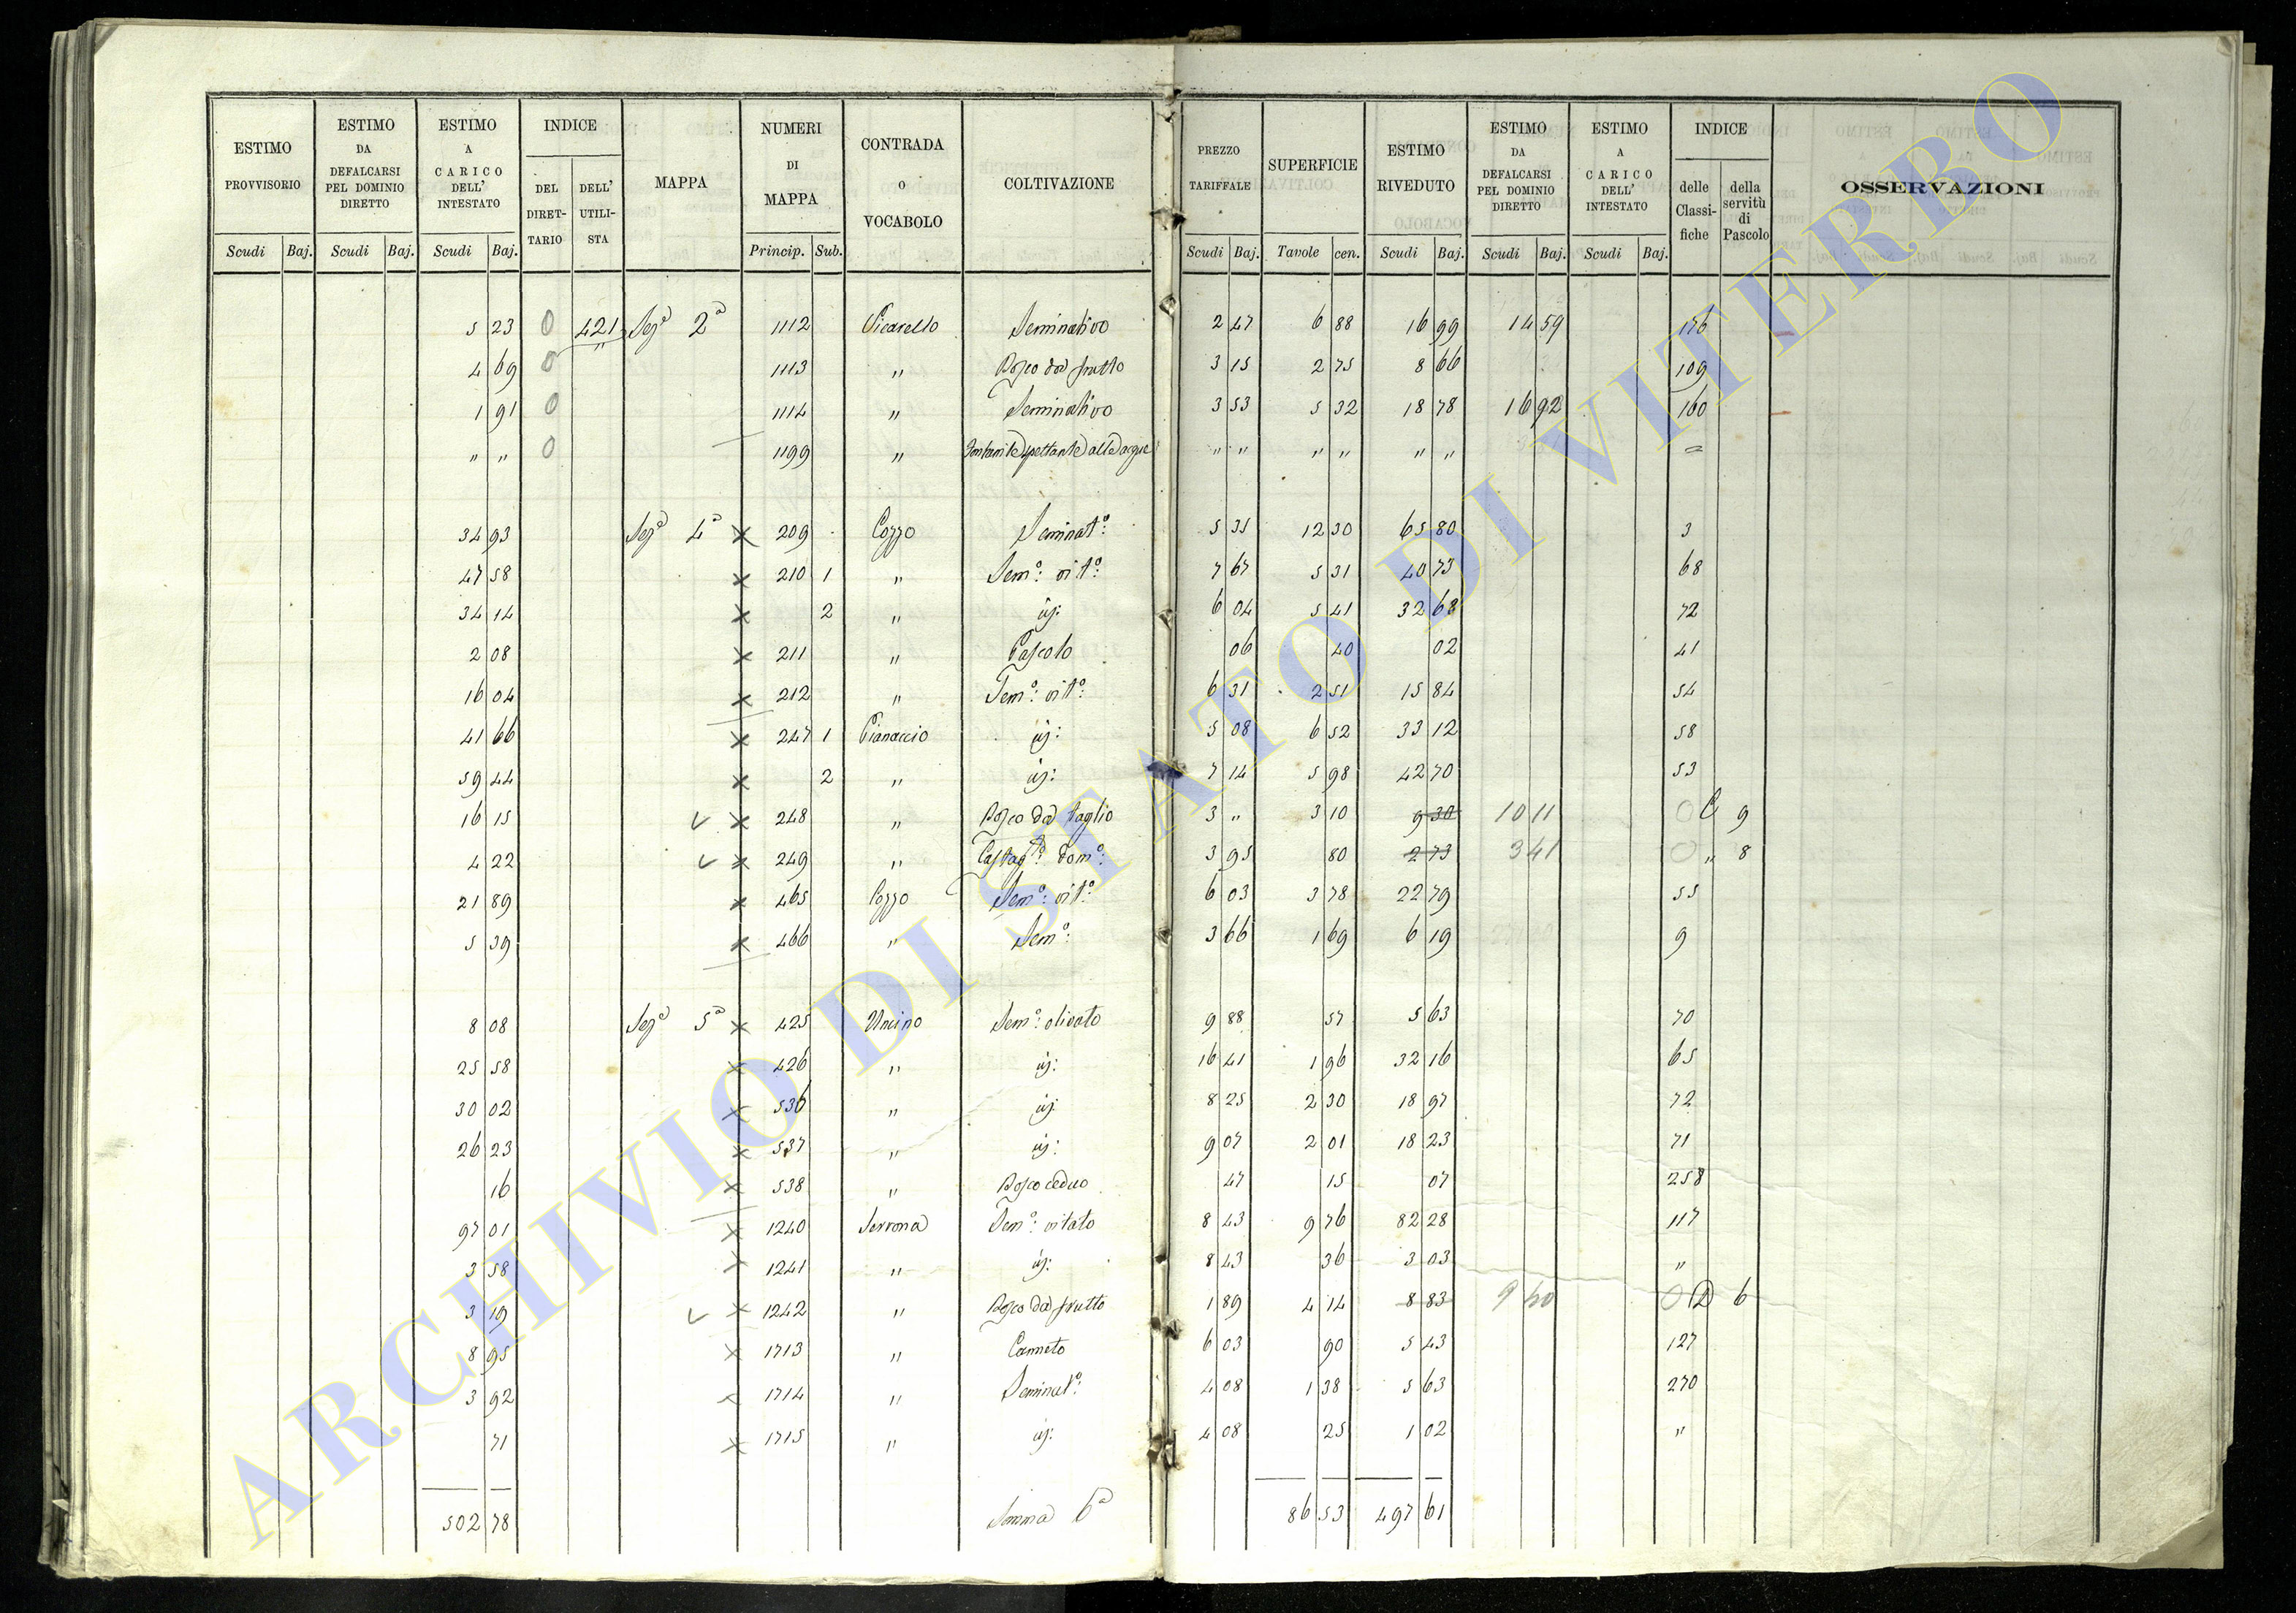 ESTIMO PROVVISORIO | ESTIMO DA DEFALCARSI PEL DOMINIO DIRETTO | ESTIMO A CARICO DELL' INTESTATO | INDICE | MAPPA | NUMERI DI MAPPA | CONTRADA O VOCABOLO | COLTIVAZIONE | PREZZO TARIFFALE | SUPERFICIE | ESTIMO RIVEDUTO | ESTIMO DA DEFALCARSI PEL DOMINIO DIRETTO | ESTIMO A CARICO DELL' INTESTATO | INDICE | OSSERVAZIONI
DEL DIRETTARIO | DELL' UTILISTA | delle Classifiche | della servitù di Pascolo
Scudi | Baj. | Scudi | Baj. | Scudi | Baj. | Princip. | Sub. | Scudi | Baj. | Tavole | cen. | Scudi | Baj. | Scudi | Baj. | Scudi | Baj.
5 23 0 421 Sezª 2ª 1112 Vicarello Seminativo 2 47 6 88 16 99 14 59 176
4 69 0 " 1113 " Bosco da frutto 3 15 2 75 8 66 109
1 91 0 1114 " Seminativo 3 53 5 32 18 78 16 92 160
" " 0 1199 " Fontanile spettante alle acque " " " " " " =
34 93 Sezª 4ª × 209 Pozzo Seminatº: 5 35 12 30 65 80 3
47 58 × 210 1 " Semº: vitº: 7 67 5 31 40 73 68
34 14 × 2 " id: 6 04 5 41 32 68 72
2 08 × 211 " Pascolo 06 40 02 41
16 04 × 212 " Semº: vitº: 6 31 2 51 15 84 54
41 66 × 247 1 Pianaccio id: 5 08 6 52 33 12 58
59 44 × 2 " id: 7 14 5 98 42 70 53
16 15 v × 248 " Bosco da taglio 3 " 3 10 9 30 10 11 0 C 9
4 22 v × 249 " Castagº: domº: 3 95 80 2 73 3 41 0 " 8
21 89 × 465 Pozzo Semº: vitº: 6 03 3 78 22 79 55
5 39 × 466 " Semº: 3 66 1 69 6 19 9
8 08 Sezª 5ª × 425 Uncino Semº: olivato 9 88 57 5 63 70
25 58 × 426 " id: 16 41 1 96 32 16 65
30 02 × 536 " id: 8 25 2 30 18 97 72
26 23 × 537 " id: 9 07 2 01 18 23 71
16 × 538 " Bosco ceduo 47 15 07 258
97 01 × 1240 Serrona Semº: vitato 8 43 9 76 82 28 117
3 58 × 1241 " id: 8 43 36 3 03 "
3 19 v × 1242 " Bosco da frutto 1 89 4 14 8 83 9 40 0 D 6
8 95 × 1713 " Canneto 6 03 90 5 43 127
3 92 × 1714 " Seminatº: 4 08 1 38 5 63 270
71 × 1715 " id: 4 08 25 1 02 "
502 78 Somma 6ª 86 53 497 61
ARCHIVIO DI STATO DI VITERBO